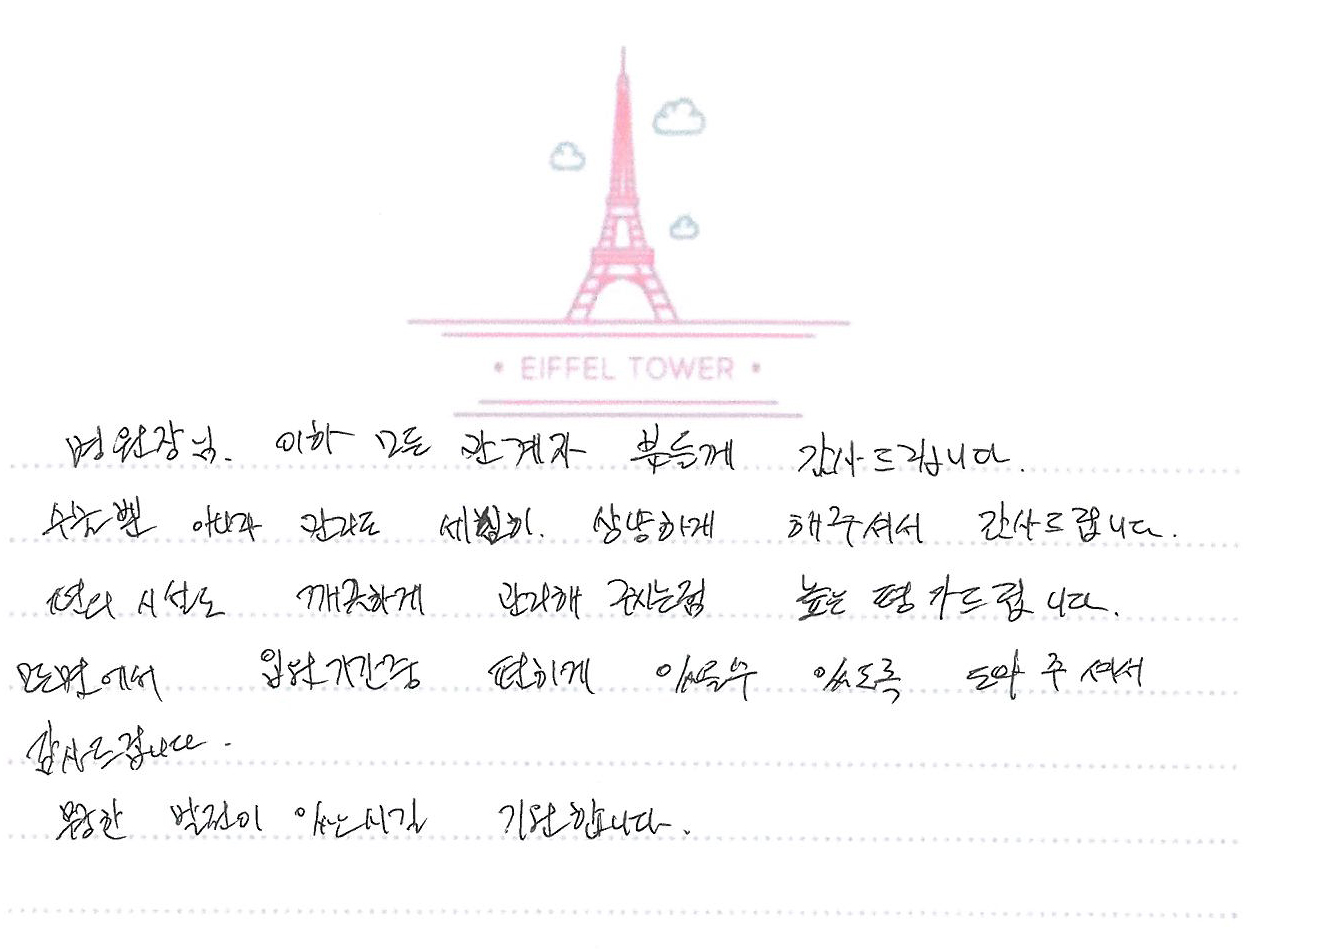 • EIFFEL TOWER •
병원장님. 이하 모든 관계자 분들께 감사드립니다.
수술뿐 아니라 관리도 세심히. 상냥하게 해주셔서 감사드립니다.
편의시설도 깨끗하게 관리해 주시는점 높은 평가드립니다.
모든면에서 입원기간중 편하게 있을수 있도록 도와주셔서
감사드립니다.
무궁한 발전이 있으시길 기원합니다.